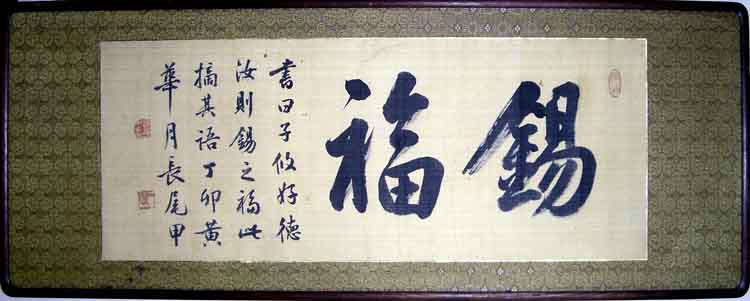 錫福
書曰予攸好德
汝則錫之福此
摘其語丁卯黃
華月長尾甲